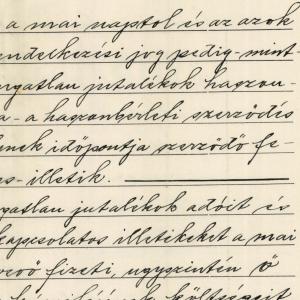 a mai naptol és az azok
rendelkezési jog pedig - mint-
ngatlan jutalékok haszon-
a - a haszonbérleti szerződés
ének időpontja szerződő fe-
es - illetik.
ngatlan jutalékok adóit és
kapcsolatos illetékeket a mai
vevő fizeti, ugyszintén ő
költségeit